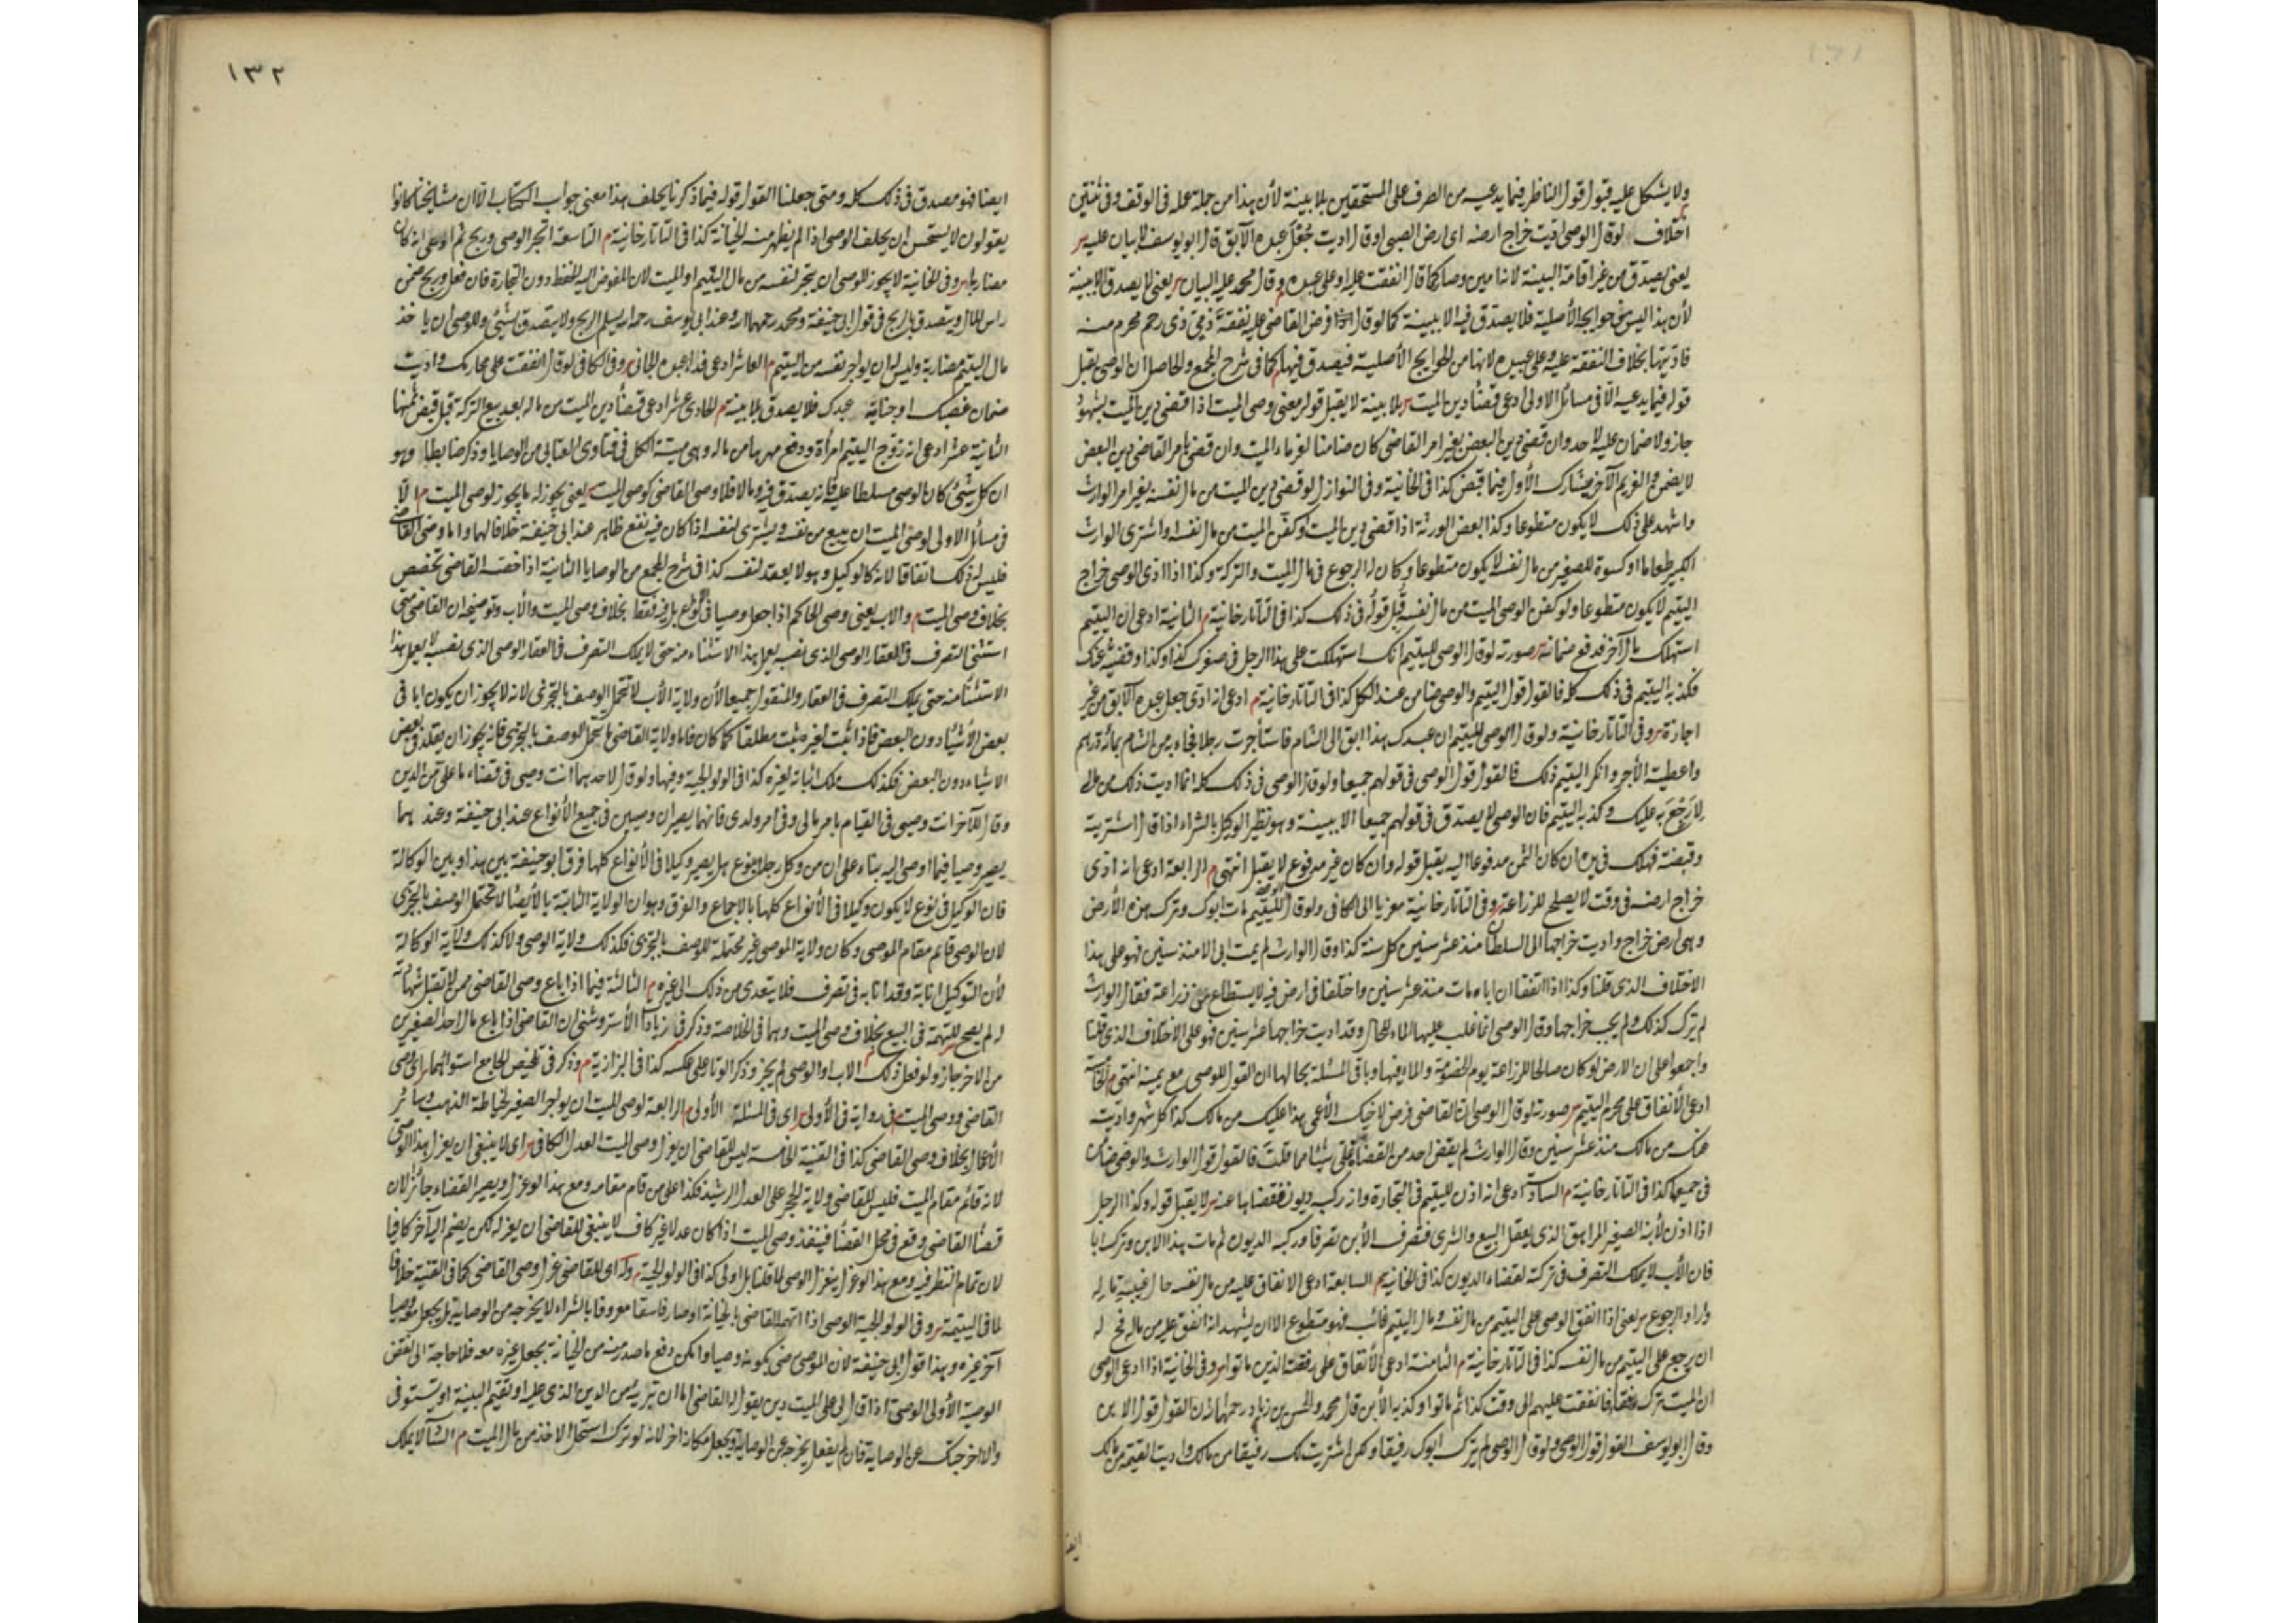 ولا يشكل عليه قبول قول الناظر فيما يدعيه من الصرف على المستحقين بلا بينة لأن هذا من جملة عمله في الوقف وفي ثنتين
اختلاف لو قال الوصي اديت خراج ارضه اى ارض الصبى او قال اديت جعل عبده الآبق قال ابو يوسف لا بيان عليه
يعنى يصدق من غير اقامة البينة لانه امين وصار كما قال انفقت عليه او على عبده وقال محمد عليه البيان يعنى لا يصدق الا ببينة
لأن هذا ليس من حوايجه الأصلية فلا يصدق فيه الا ببينة كما لو قال فرض القاضى عليه نفقة ذى رحم محرم منه
فاديتها بخلاف النفقة عليه وعلى عبيده لانها من الحوايج الأصلية فيصدق فيها كما فى شرح المجمع والحاصل ان الوصى يقبل
قوله فيما يدعيه الا فى مسائل الاولى ادعى قضاء دين الميت بلا بينة لا يقبل قوله معنى وصى الميت اذا قضى دين الميت بشهود
جاز ولا ضمان عليه لاحد وان قضى دين البعض بغير امر القاضى كان ضامنا لغرماء الميت وان قضى بامر القاضى دين البعض
لا يضمن والغريم الآخر يشارك الأول فيما قبض كذا فى الخانية وفى النوازل لو قضى دين الميت من مال نفسه بغير امر الوارث
واشهد على ذلك لا يكون متطوعا وكذا بعض الورثة اذا قضى دين الميت او كفن الميت من مال نفسه او اشترى الوارث
الكبير طعاما او كسوة للصغير من مال نفسه لا يكون متطوعا وكان له الرجوع فى مال الميت والتركة وكذا اذا ادى الوصى خراج
اليتيم لا يكون متطوعا ولو كفن الوصى الميت من مال نفسه قبل قوله فى ذلك كذا فى التاتارخانية م الثانية ادعى ان اليتيم
استهلك مال آخر فدفع ضمانه صورته لو قال الوصى لليتيم انك استهلكت على هذا الرجل فى صغرك كذا وكذا وقضيته عنك
فكذبه اليتيم فى ذلك كله فالقول قول اليتيم والوصى ضامن عند الكل كذا فى التاتارخانية م ادعى انه ادى جعل عبده الآبق من غير
اجازة وفى التاتارخانية ولو قال الوصى لليتيم ان عبدك هذا ابق الى الشام فاستأجرت رجلا فجاء به من الشام بمائة درهم
واعطيته الأجر وانكر اليتيم ذلك فالقول قول الوصى فى قولهم جميعا ولو قال الوصى فى ذلك كله انما اديت ذلك من مالى
لارجع به عليك وكذبه اليتيم فان الوصى لا يصدق فى قولهم جميعا الا ببينة وهو نظير الوكيل بالشراء اذا قال اشتريت
وقبضته فهلك فى يدى ان كان الثمن مدفوعا اليه يقبل قوله وان كان غير مدفوع لا يقبل انتهى م الرابعة ادعى انه ادى
خراج ارضه فى وقت لا يصلح للزراعة وفى التاتارخانية معزيا الى الكافى ولو قال الوصى لليتيم مات ابوك وترك هذه الأرض
وهى ارض خراج واديت خراجها الى السلطان منذ عشر سنين كل سنة كذا وقال الوارث لم يمت ابى الا منذ سنين فهو على هذا
الاختلاف الذى قلنا وكذا اذا اتفقا ان اباه مات منذ عشر سنين واختلفا فى ارض فيه لا يستطاع على زراعته فقال الوارث
لم ترك كذلك ولم يجب خراجها وقال الوصى انما غلب عليها الماء للحال وقد اديت خراجها عشر سنين فهو على الاختلاف الذى قلنا
واجمعوا على ان الارض لو كان صالحا للزراعة يوم الخصومة والماء فيها وباقى المسئلة بحالها ان القول للوصى مع يمينه انتهى م الخامسة
ادعى الأنفاق على محرم اليتيم صورته لو قال الوصى ان القاضى فرض لاخيك الأعمى هذا عليك من مالك كذا كل شهر واديته
عنك من مالك منذ عشر سنين وقال الوارث لم يقض احد من القضاة على شيئا مما قلت فالقول قول الوارث والوصى ضامن
فى جميعها كذا فى التاتارخانية م السادسة ادعى انه اذن لليتيم فى التجارة وانه ركبه ديون فقضاها عنه لا يقبل قوله وكذا الرجل
اذا اذن لأبنه الصغير المراهق الذى يعقل البيع والشرى فتصرف الأبن تصرفا وركبه الديون ثم مات هذا الابن وترك ابا
فان الأب لا يملك التصرف فى تركته لقضاء الديون كذا فى الخانية م السابعة ادعى الانفاق عليه من مال نفسه حال غيبة ماله
واراد الرجوع يعنى اذا انفق الوصى على اليتيم من مال نفسه ومال اليتيم غائب فهو متطوع الا ان يشهد انه انفق عليه من ماله
ان يرجع على اليتيم من مال نفسه كذا فى التاتارخانية م الثامنة ادعى الأنفاق على رقيقه الذين ماتوا وفى الخانية اذا ادعى الوصى
ان الميت ترك رقيقا فانفقت عليهم الى وقت كذا ثم ماتوا وكذبه الأبن قال محمد والحسن بن زياد رحمهما ان القول قول الابن
وقال ابو يوسف القول قول الوصى ولو قال الوصى لم يترك ابوك رقيقا ولكن اشتريت لك رقيقا من مالك واديت القيمة من مالك
ايضا
١٣٢
ايضا فهو مصدق فى ذلك كله ومتى جعلنا القول قوله فيما ذكرنا يحلف هذا معنى جواب الكتاب الا ان مشايخنا كانوا
يقولون لا يستحسن ان يحلف الوصى اذا لم يظهر منه الخيانة كذا فى التاتارخانية م التاسعة اتجر الوصى وربح ثم ادعى انه كان
مضاربا وفى الخانية لا يجوز للوصى ان يتجر لنفسه من مال اليتيم او الميت لان المفوض اليه الحفظ دون التجارة فان فعل وربح ضمن
راس المال ويتصدق بالربح فى قول ابى حنيفة ومحمد رحمهما الله وعند ابى يوسف رحمه الله يسلم الربح ولا يتصدق بشئ وللوصى ان ياخذ
مال اليتيم مضاربة وليس له ان يواجر نفسه من اليتيم م العاشر ادعى فداء عبده الجانى وفى الكافى لو قال انفقت على محارمك واديت
ضمان غصبك او جناية عبدك فلا يصدق بلا بينة م الحادى عشر ادعى قضاء دين الميت من ماله بعد بيع التركة قبل قبض ثمنها
الثانية عشر ادعى انه زوج اليتيم امرأة ودفع مهرها من ماله وهى ميتة الكل فى فتاوى العتابى من الوصايا وذكر ضابطا وهو
ان كل شئ كان الوصى مسلطا عليه فانه يصدق فيه وما لا فلا وصى القاضى كوصى الميت يعنى يجوز له ما يجوز لوصى الميت م الا
فى مسائل الاولى لوصى الميت ان يبيع من نفسه ويشترى لنفسه اذا كان فيه نفع ظاهر عند ابى حنيفة خلافا لهما واما وصى القاضى
فليس له ذلك اتفاقا لانه كالوكيل وهو لا يعقد لنفسه كذا فى شرح المجمع من الوصايا الثانية اذا خصه القاضى تخصص
بخلاف وصى الميت م والاب يعنى وصى الحاكم اذا جعل وصيا فى نوع بل فيه فقط بخلاف وصى الميت والأب وتوضيحه ان القاضى متى
استثنى التصرف فى العقار الوصى الذى نصبه يعمل بهذا الاستثناء منه حتى لا يملك التصرف فى العقار الوصى الذى نصبه لا يعمل هذا
الاستثناء منه حتى يملك التصرف فى العقار والمنقول جميعا لأن ولاية الأب لا تحتمل الوصف بالتجزئ لانه لا يجوز ان يكون ابا فى
بعض الأشياء دون البعض فاذا اثبت لغيره ثبت مطلقا كما كان فاما ولاية القاضى ما تحتمل الوصف بالتجزئ فانه يجوز ان يقلد فى بعض
الاشياء دون البعض فكذلك ملك اثباته لغيره كذا فى الولوالجية وفيها ولو قال لاحدهما انت وصيى فى قضاء ما على من الدين
وقال للآخر انت وصيى فى القيام بامر مالى وفى امر ولدى فانهما يصيران وصيين فى جميع الأنواع عند ابى حنيفة وعندهما
يصير وصيا فيما اوصى اليه بناء على ان من وكل رجلا بنوع هل يصير وكيلا فى الأنواع كلها فرق ابو حنيفة بين هذا وبين الوكالة
فان الوكيل فى نوع لا يكون وكيلا فى الأنواع كلها بالاجماع والفرق وهو ان الولاية الثابتة بالأيصاء لا تحتمل الوصف بالتجزى
لان الوصى قائم مقام الموصى وكان ولاية الموصى غير محتملة للوصف بالتجزى فكذلك ولاية الوصى ولا كذلك ولاية الوكالة
لأن التوكيل انابة وقد انابه فى تصرف فلا يتعدى من ذلك الى غيره م الثالثة فيما اذا باع وصى القاضى ممن لا تقبل شهادته
له لم يصح للتهمة فى البيع بخلاف وصى الميت وهما فى الخلاصة وذكر فى زيادات الأستروشنى ان القاضى اذا باع مال احد الصغيرين
من الاخر جاز ولو فعل ذلك الاب او الوصى لم يجز وذكر الوتار على عكسه كذا فى البزازية م وذكر فى تلخيص الجامع استوائهما اى وصى
القاضى ووصى الميت فى رواية فى الأولى اى فى المسئلة الأولى م الرابعة لوصى الميت ان يواجر الصغير لخياطة الذهب وسائر
الأعمال بخلاف وصى القاضى كذا فى القنية الخامسة ليس للقاضى ان يعزل وصى الميت العدل الكافى اى لا ينبغى ان يعزل هذا الوصى
لانه قائم مقام الميت فليس للقاضى ولاية الحجر على العدل الرشيد فكذا على من قام مقامه ومع هذا لو عزل ويصير القضاء جائزا لان
قضاء القاضى وقع فى محل القضاء فينفذ وصى الميت اذا كان عدلا غير كاف لا ينبغى للقاضى ان يعزله لكن يضم اليه آخر كافيا
لان تمام النظر فيه ومع هذا لو عزل ينعزل الوصى لما قلنا بل اولى كذا فى الولوالجية م وله اى للقاضى عزل وصى القاضى كما فى القنية خلافا
لما فى اليتيمة وفى الولوالجية الوصى اذا اتهمه القاضى بالخيانة او صار فاسقا معروفا بالشراء لا يخرجه من الوصاية بل يجعل وصيا
آخر غيره وهذا قول ابى حنيفة لان الموصى رضى بكونه وصيا وامكن دفع ما صدر منه من الخيانة بجعل غيره معه فلا حاجة الى نقض
الوصية الأولى الوصى اذا قال لى على الميت دين يقول له القاضى اما ان تبريه من الدين الذى عليه او تقيم البينة او تستوفى
والا اخرجتك عن الوصاية فان لم يفعل يخرجه عن الوصاية ويجعل مكانه اخر لانه لو تركه استحل الاخذ من مال الميت م لا يملك